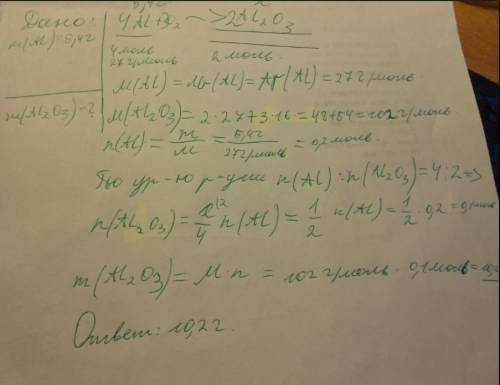 Дано:
m(Al)=5,4г
m(Al₂O₃)-?
5,4г x
4Al+3O₂ → 2Al₂O₃
4моль 2моль
27г/моль
M(Al)=Mr(Al)=Ar(Al)=27г/моль
M(Al₂O₃)=2·27+3·16=48+54=102г/моль.
n(Al)=m/M=5,4г/27г/моль=0,2моль.
По ур-ю р-ции n(Al):n(Al₂O₃)=4:2=>
n(Al₂O₃)=2/4 n(Al)=1/2 n(Al)=1/2·0,2=0,1моль
m(Al₂O₃)=M·n=102г/моль·0,1моль=10,
Ответ: 10,2г.